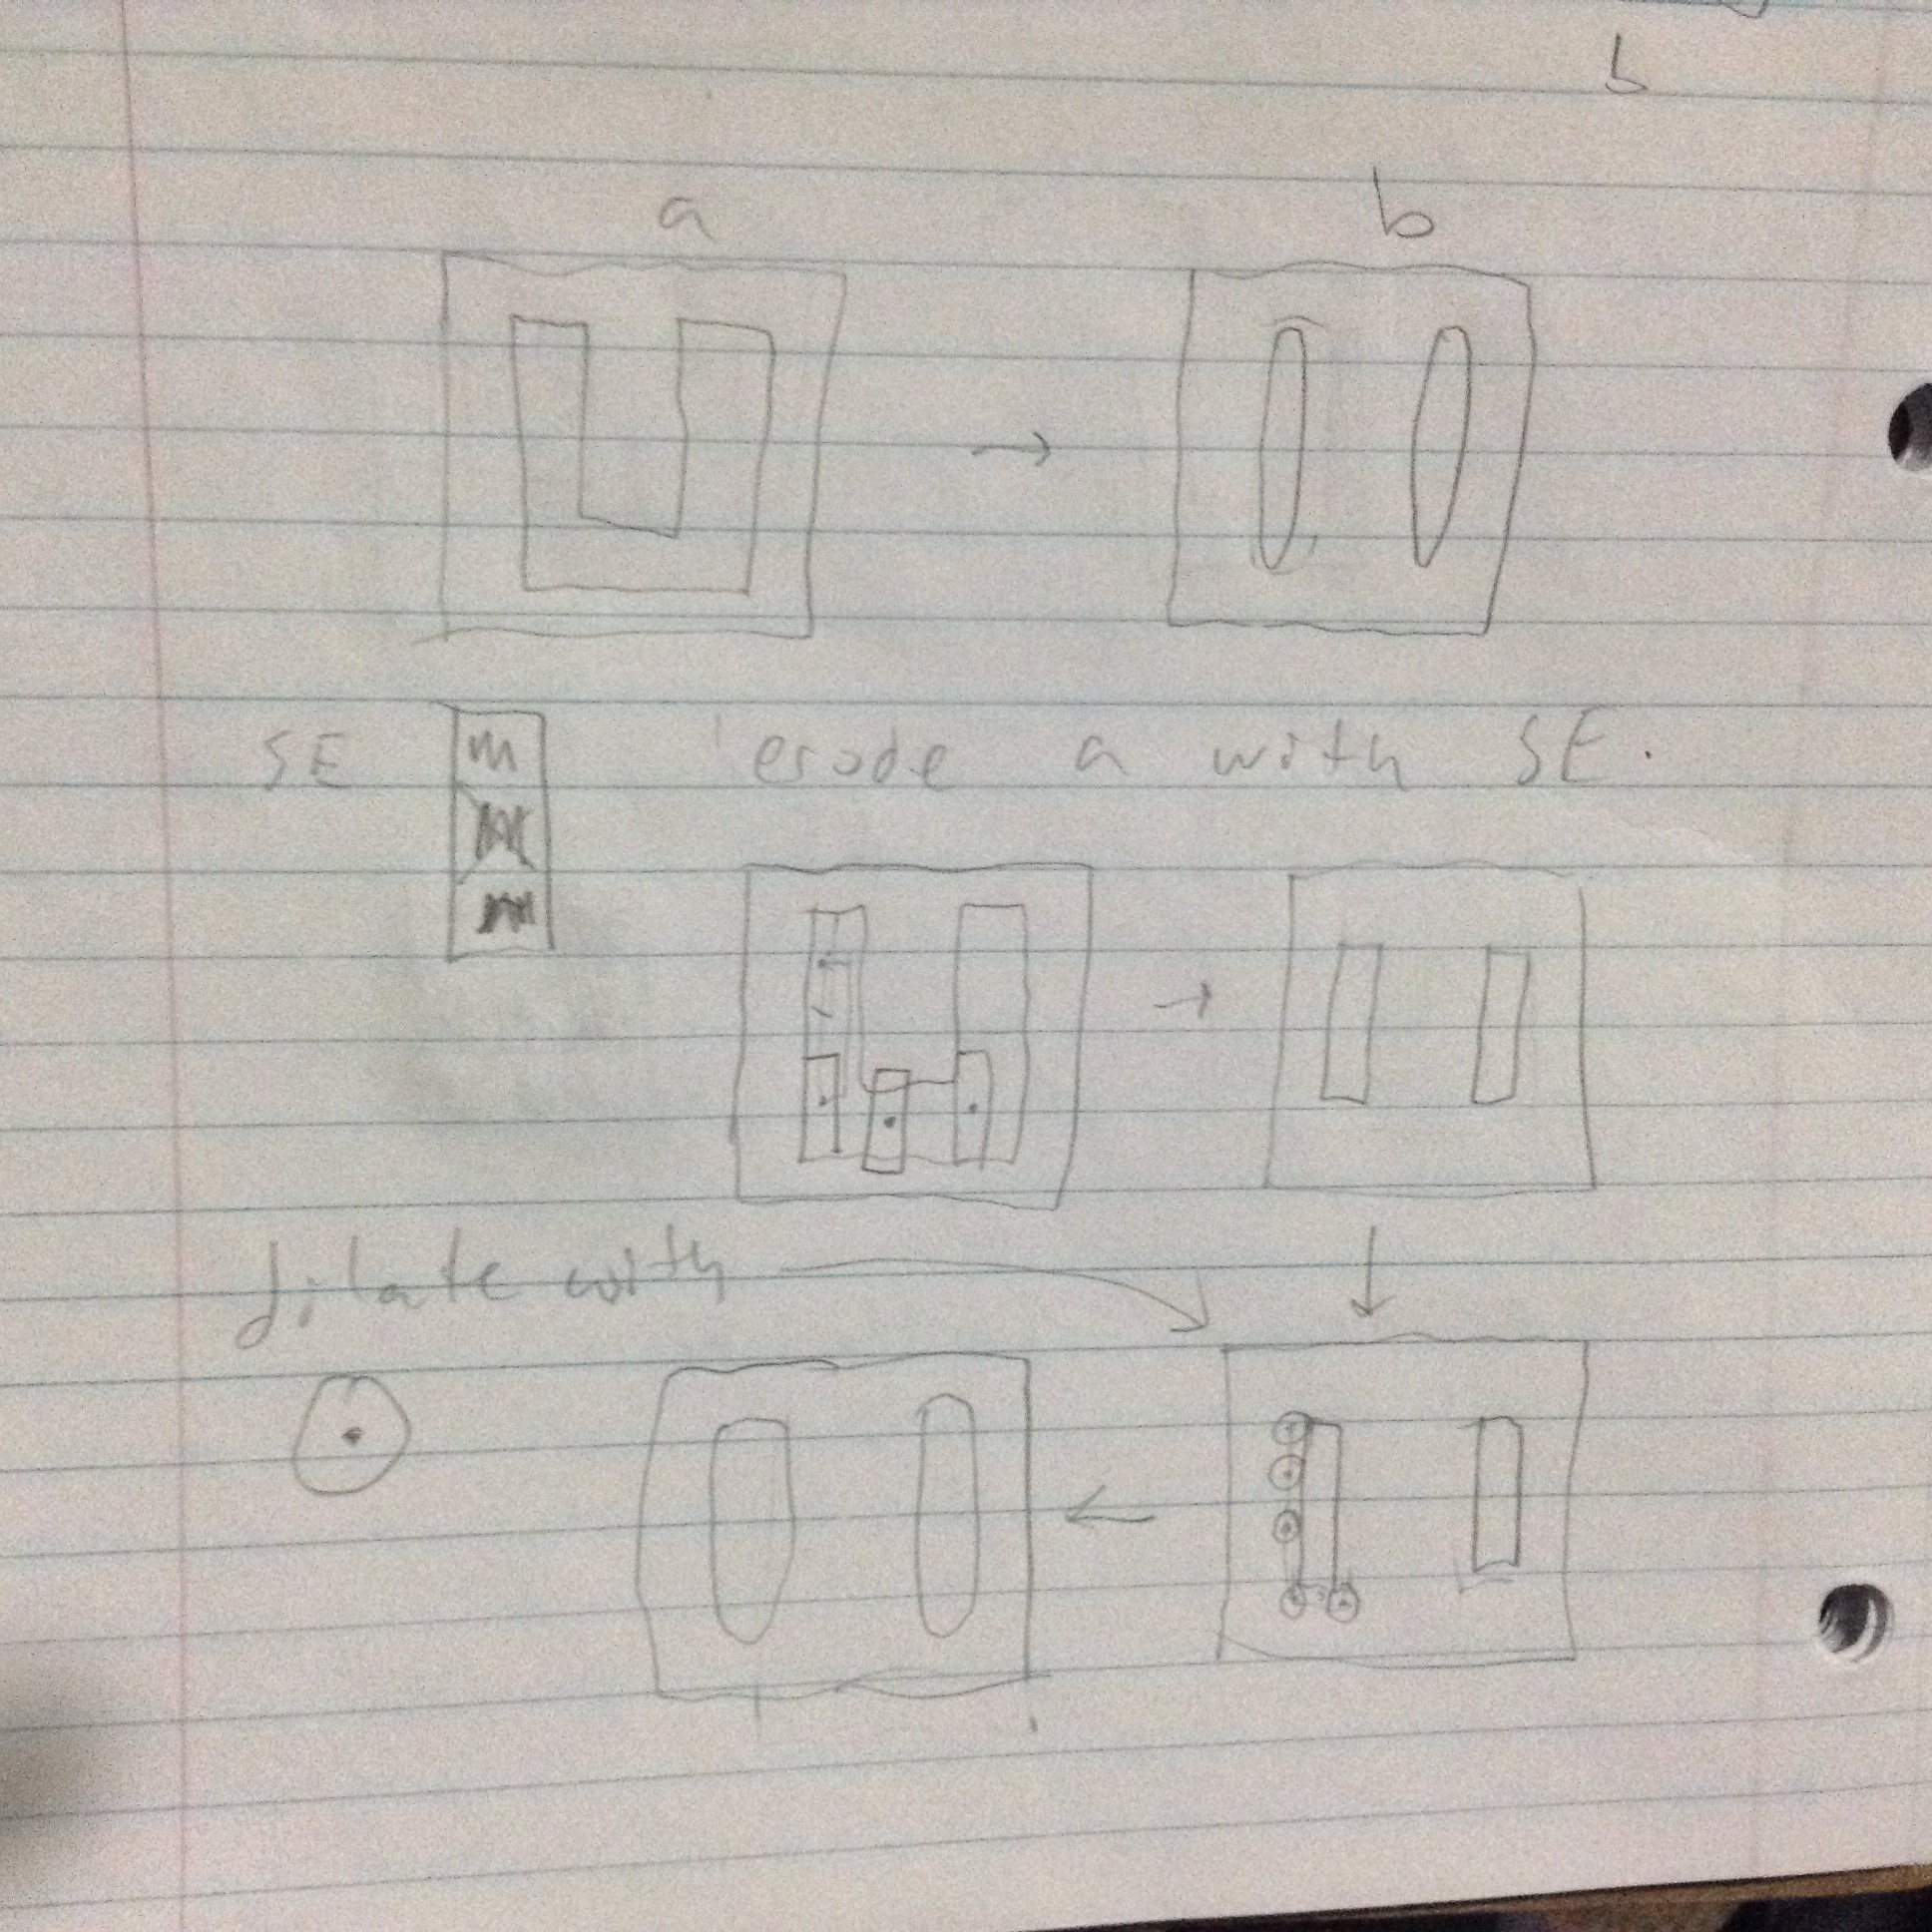 b
a b
SE erode a with SE.
dilate with